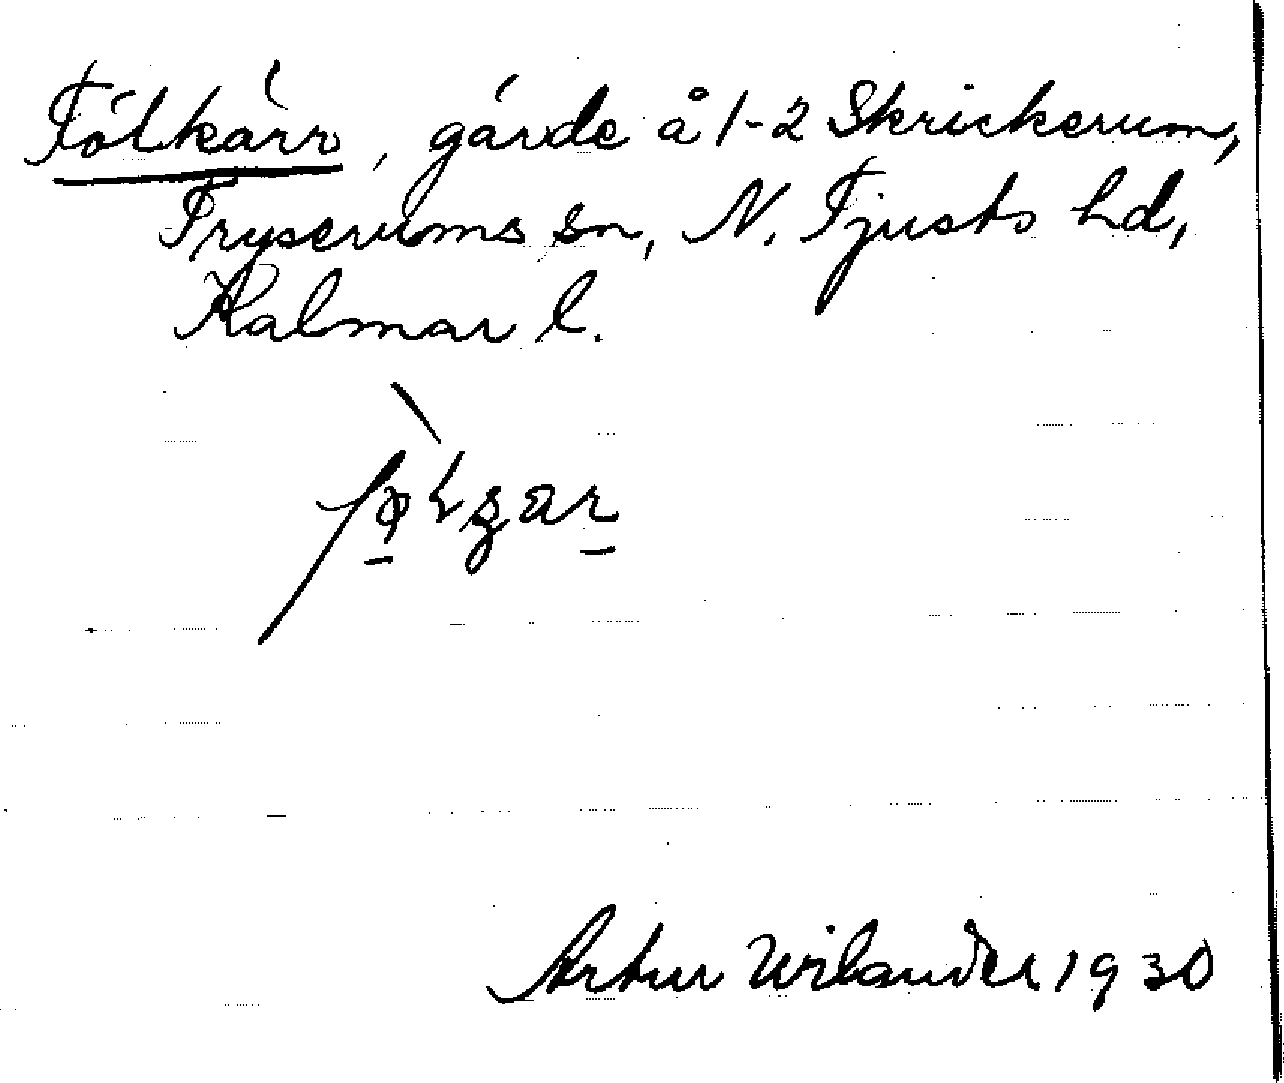 Tólkärr, gärde å 1-2 Skrickerum,
Tryserums sn, N. Tjusts hd,
Kalmar l.
Artur Wilander 1930